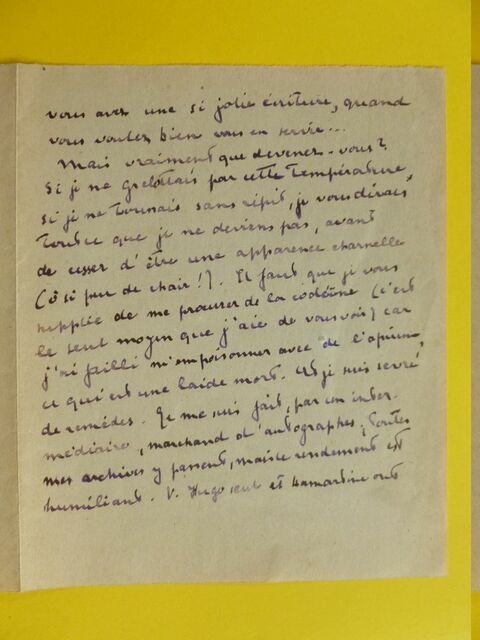 vous avez une si jolie écriture, quand
vous voulez bien vous en servir...
Mais vraiment que devenez-vous?
Si je ne grelottais par cette température,
si je ne toussais sans répit, je vous dirais
tout ce que je ne deviens pas, avant
de cesser d'être une apparence charnelle
(ô si peu de chair!). Il faut que je vous
supplie de me procurer de la codéine (c'est
le seul moyen que j'aie de vous voir) car
j'ai failli m'empoisonner avec de l'opium,
ce qui est une laide mort. Et je suis sevré
de remèdes. Je me suis fait, par un inter-
médiaire, marchand d'autographes; toutes
mes archives y passent, mais le rendement est
humiliant. V. Hugo seul et Lamartine ont